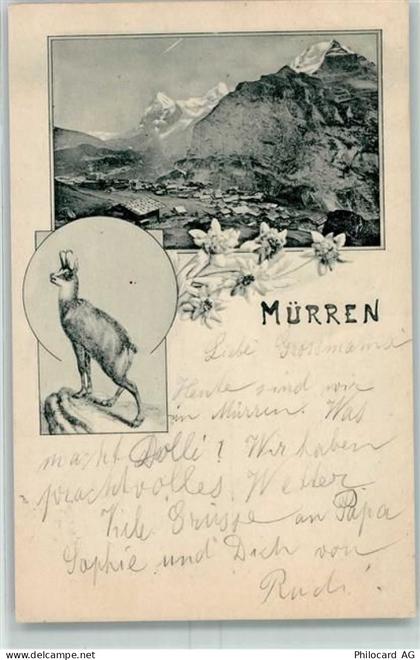 MÜRREN
Liebe Grossmama!
Heute sind wir
in Mürren. Was
macht Dolli? Wir haben
prachtvolles Wetter.
Viele Grüsse an Papa
Sophie und Dich von
Rudi.
www.delcampe.net
Philocard AG